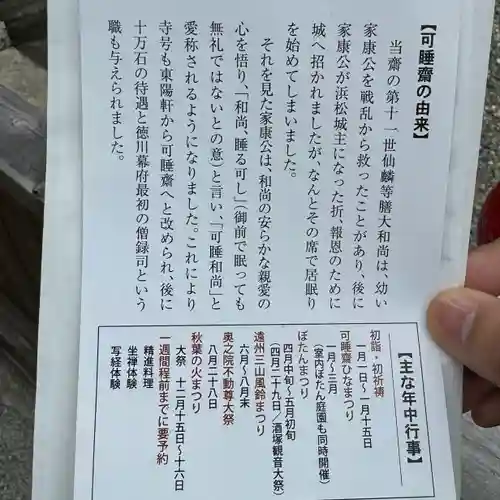 【可睡齋の由来】
当齋の第十一世仙麟等膳大和尚は、幼い
家康公を戦乱から救ったことがあり、後に
家康公が浜松城主になった折、報恩のために
城へ招かれましたが、なんとその席で居眠り
を始めてしまいました。
それを見た家康公は、和尚の安らかな親愛の
心を悟り、「和尚、睡る可し」(御前で眠っても
無礼ではないとの意)と言い、「可睡和尚」と
愛称されるようになりました。これにより
寺号も東陽軒から可睡齋へと改められ、後に
十万石の待遇と徳川幕府最初の僧録司という
職も与えられました。
【主な年中行事】
初詣・初祈祷
一月一日～一月十五日
可睡齋ひなまつり
一月～三月
(室内ぼたん庭園も同時開催)
ぼたんまつり
四月中旬～五月初旬
(四月二十九日/酒塚観音大祭)
遠州三山風鈴まつり
六月～八月末
奥之院不動尊大祭
八月二十八日
秋葉の火まつり
大祭 十二月十五日～十六日
一週間程前までに要予約
精進料理
坐禅体験
写経体験